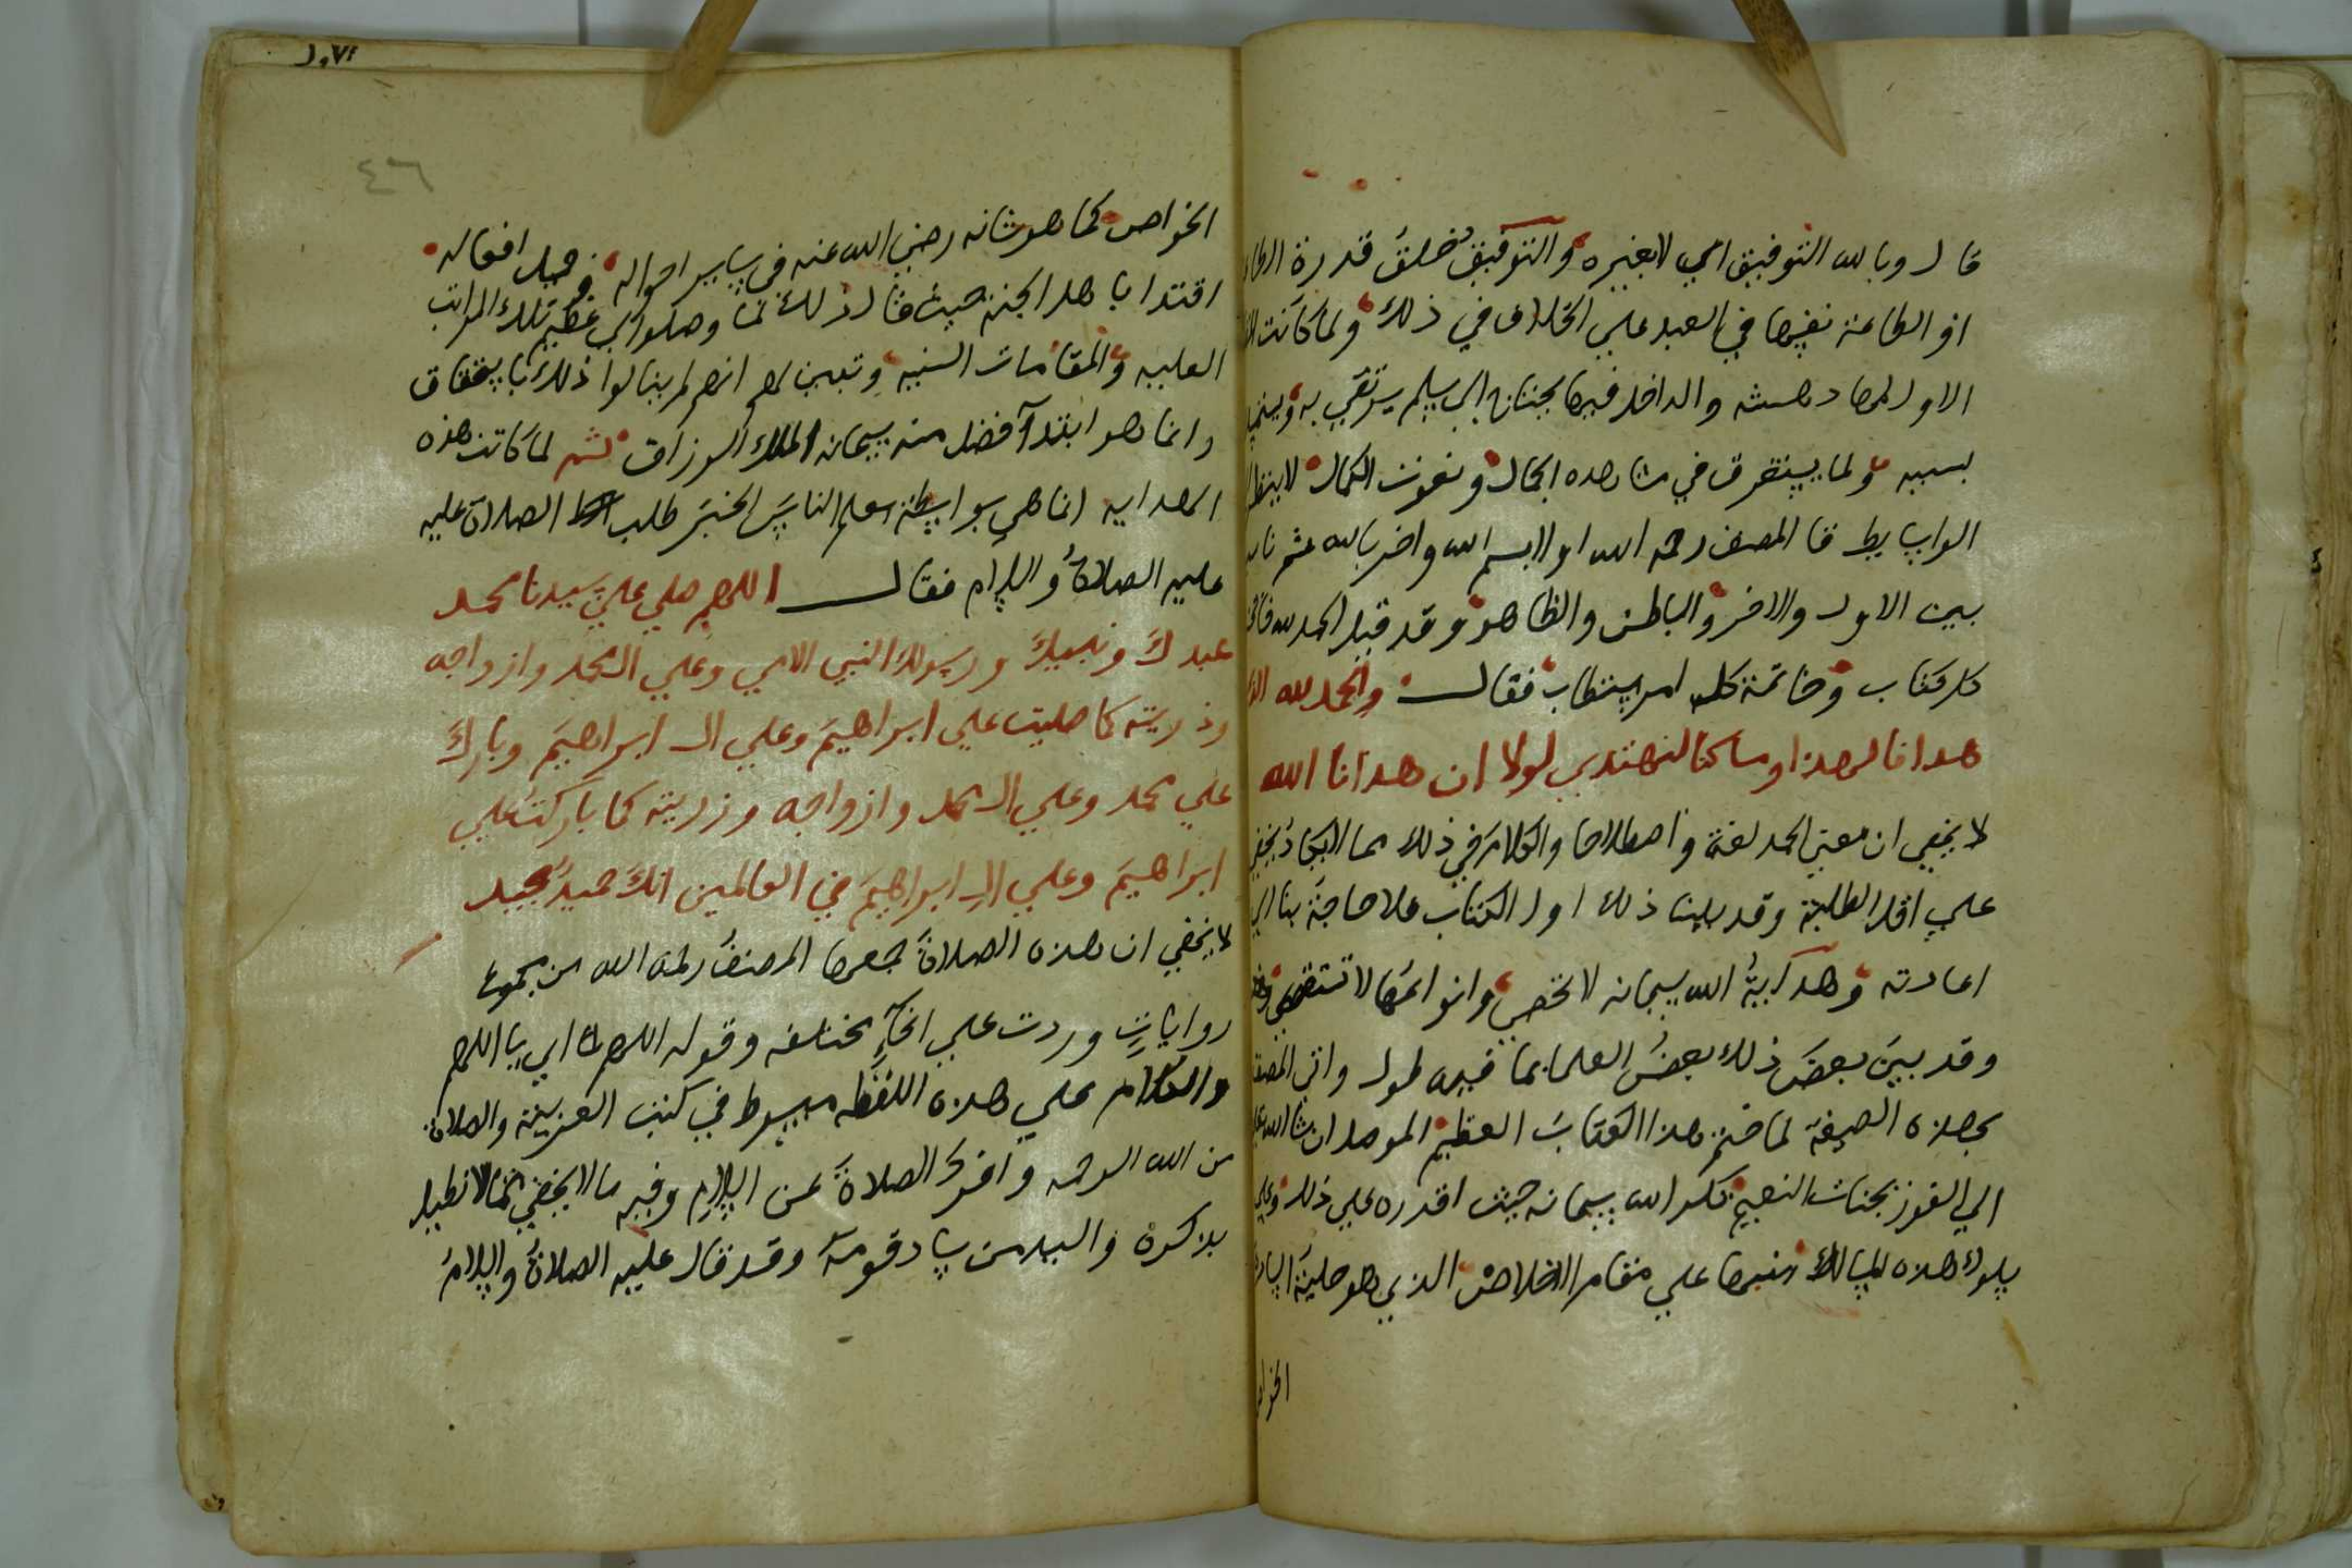 قال وبالله التوفيق اي لا بغيره والتوفيق خلق قدرة
او الطاعة نفسها في العبد علي الخلاف في ذلك ولما كانت
الاول لها دهشه والداخل فيها يحتاج الي سلم يرتقي به
بسببه ولما يستغرق في مشاهده الجمال ونعوت الكمال لا ينظر
الوسايط قا المصنف رحمه الله اولا بسم الله واخر بالله ثم
بين الاول والاخر والباطن والظاهر وقد قيل الحمد لله
كل كتاب وخاتمة كل امر يستطاب فقال والحمد لله
هدانا لهذا وما كنا لنهتدي لولا ان هدانا الله
لا يخفي ان معني الحمد لغة واصطلاحا والكلام في ذلك مما لا يكاد يخفي
علي اقل الطلبة وقد بينا ذلك اول الكتاب فلا حاجة بنا الي
اعادته وهداية الله سبحانه لا تحصي وانواعها لا تستقصي
وقد بين بعض ذلك بعض العلما بما فيه طول واتي المصنف
بهذه الصيغة لما ختم هذا الكتاب العظيم الموصل ان شا الله
الي الفوز بجنات النعيم شكر الله سبحانه حيث اقدره علي ذلك
بسلوك هذه المسالك منبها علي مقام الاخلاص الذي هو حلية
الخواص
٤٦
الخواص كما هو شانه رضي الله عنه في ساير احواله وجميل افعاله
اقتدا باهل الجنة حيث قالو ذلك لما وصلوا الي عظيم تلك المراتب
العليه والمقامات السنيه وتبين لهم انهم لم ينالوا ذلك باستحقاق
وانما هو ابتدآ فضل منه سبحانه الملك الرزاق ثم لما كانت هذه
الهدايه انما هي بواسطة معلم الناس الخير طلب الصلاة عليه
عليه الصلاة والسلام فقال اللهم صلي علي سيدنا محمد
عبدك ونبيك ورسولك النبي الامي وعلي ال محمد وازواجه
وذريته كما صليت علي ابراهيم وعلي ال ابراهيم وبارك
علي محمد وعلي ال محمد وازواجه وذريته كما باركت علي
ابراهيم وعلي ال ابراهيم في العالمين انك حميد مجيد
لا يخفي ان هذه الصلاة جمعها المصنف رحمه الله من مجموع
روايات وردت علي انحآء مختلفه وقوله اللهم اي يا اللهم
والكلام علي هذه اللفظه مبسوط في كتب العربية والصلاة
من الله الرحمه وافرد الصلاة عن السلام وفيه ما لا يخفي مما لا نطيل
بذكره والسيد من ساد قومه وقد قال عليه الصلاة والسلام